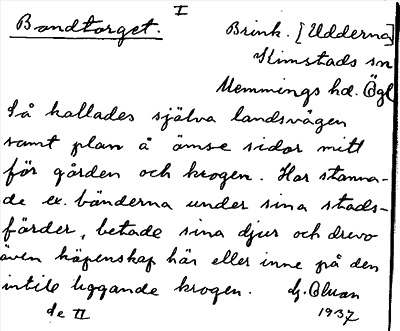 I
Bondtorget. Brink. [Udderna]
Kimstads sn
Memmings hd. Ögl
Så kallades själva landsvägen
samt plan å ömse sidor mitt
för gården och krogen. Här stanna-
de ex. bönderna under sina stads-
färder, betade sina djur och drevo
även köpenskap här eller inne på den
intill liggande krogen. G.
se II 1937